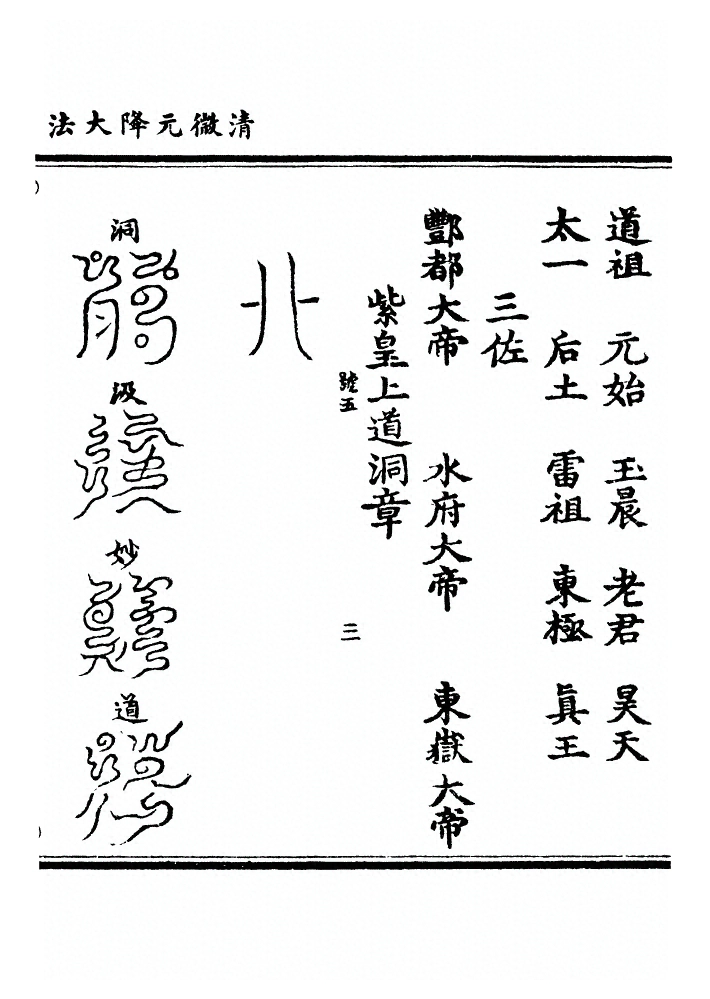 清微元降大法
道祖 元始 玉晨 老君 昊天
太一 后土 雷祖 東極 眞王
三佐
酆都大帝 水府大帝 東嶽大帝
紫皇上道洞章
號五 三
北
洞 汲 妙 道